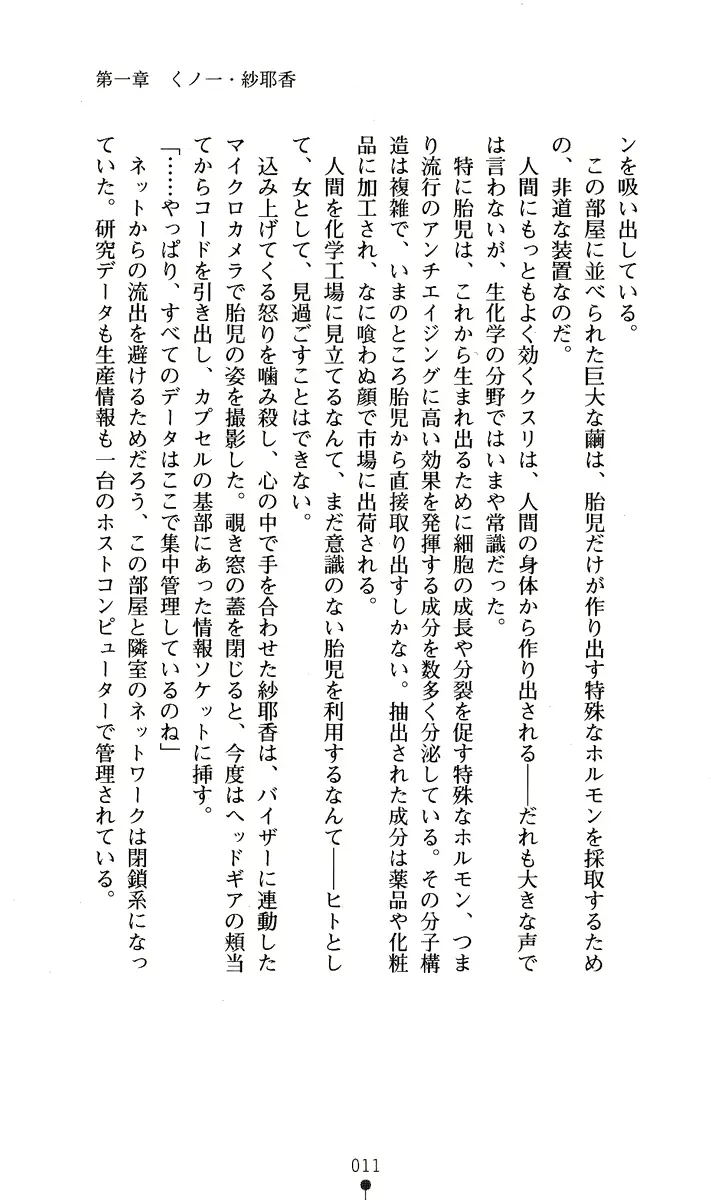 第一章　くノ一・紗耶香
ンを吸い出している。
この部屋に並べられた巨大な繭は、胎児だけが作り出す特殊なホルモンを採取するため
の、非道な装置なのだ。
人間にもっともよく効くクスリは、人間の身体から作り出される――だれも大きな声で
は言わないが、生化学の分野ではいまや常識だった。
特に胎児は、これから生まれ出るために細胞の成長や分裂を促す特殊なホルモン、つま
り流行のアンチエイジングに高い効果を発揮する成分を数多く分泌している。その分子構
造は複雑で、いまのところ胎児から直接取り出すしかない。抽出された成分は薬品や化粧
品に加工され、なに喰わぬ顔で市場に出荷される。
人間を化学工場に見立てるなんて、まだ意識のない胎児を利用するなんて――ヒトとし
て、女として、見過ごすことはできない。
込み上げてくる怒りを噛み殺し、心の中で手を合わせた紗耶香は、バイザーに連動した
マイクロカメラで胎児の姿を撮影した。覗き窓の蓋を閉じると、今度はヘッドギアの頬当
てからコードを引き出し、カプセルの基部にあった情報ソケットに挿す。
「……やっぱり、すべてのデータはここで集中管理しているのね」
ネットからの流出を避けるためだろう、この部屋と隣室のネットワークは閉鎖系になっ
ていた。研究データも生産情報も一台のホストコンピューターで管理されている。
011